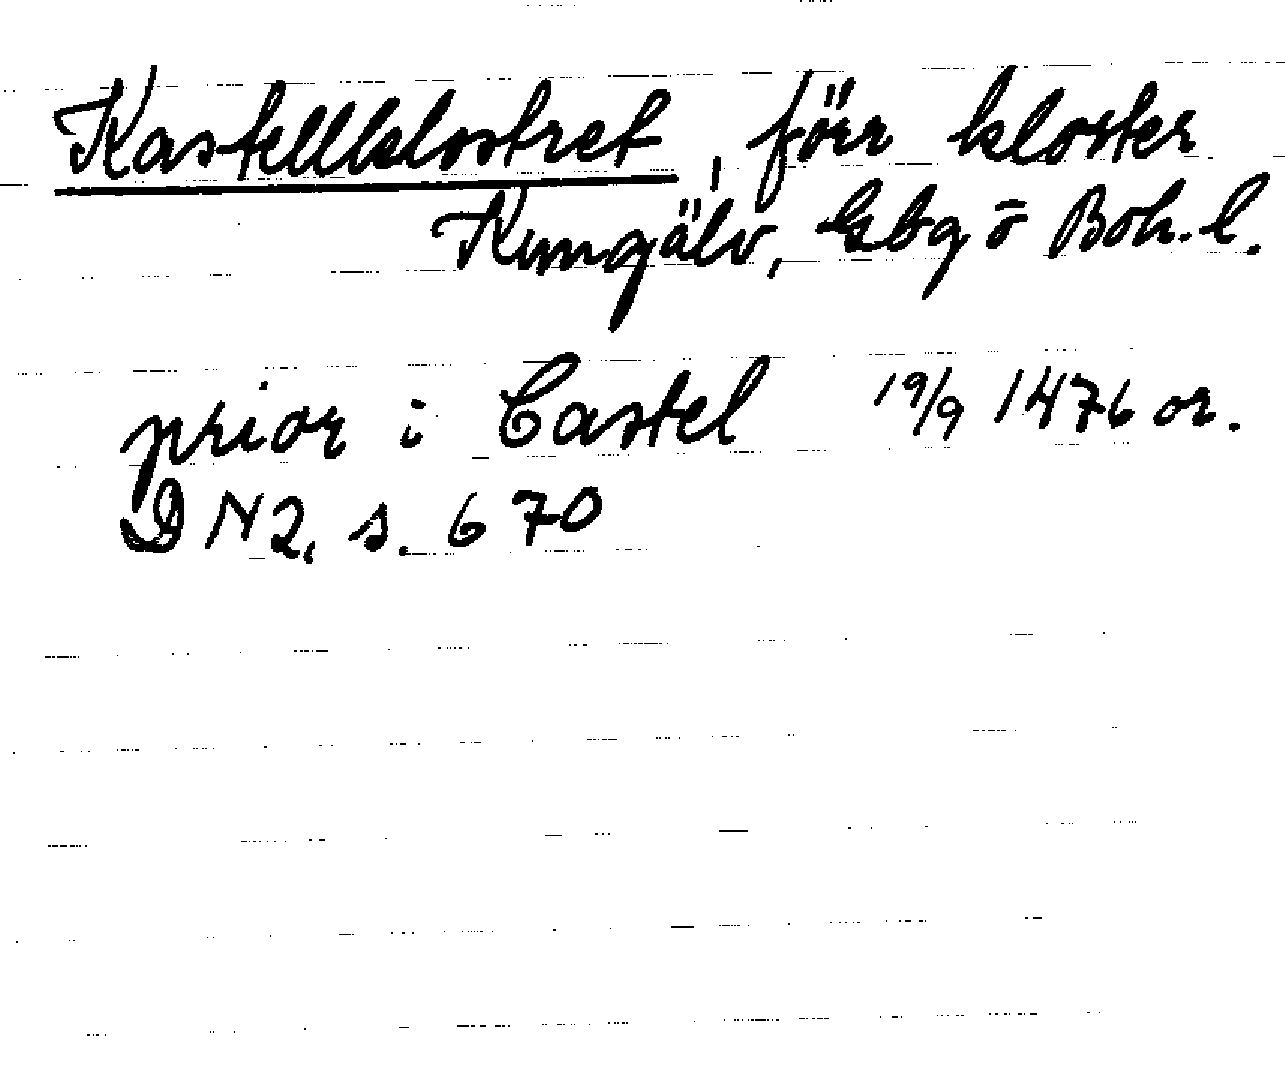 Kastellklostret, förr kloster
Kungälv, Gbg ō Boh. l.
prior i Castel 19/9 1476 or.
DN2, s. 670